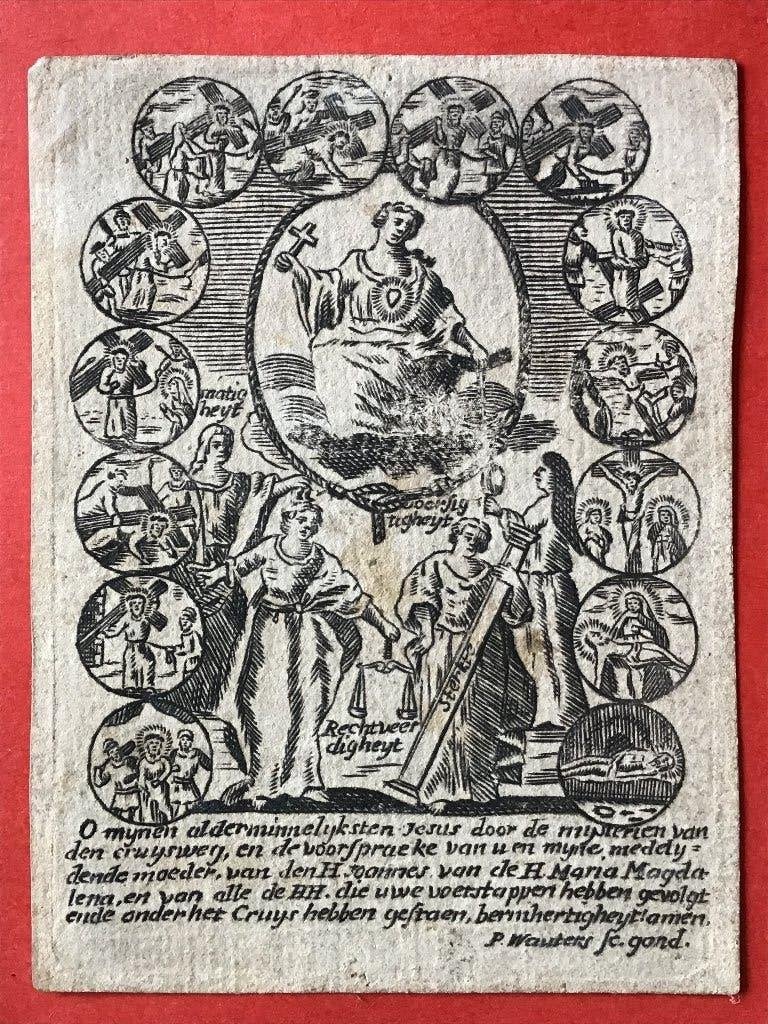 matig
heyt
voorsig
tigheyt
Sterkt
Rechtveer
digheyt
O mijnen alderminnelijksten Jesus door de mijsterien van
den cruysweg, en de voorspraeke van u en myne, meddly=
dende moeder, van den H. joannes van de H. Maria Magda
lena, en van alle de HH. die uwe voetstappen hebben gevolgt
ende onder het Cruys hebben gestaen, bermhertigheyt! amen.
P. Wauters sc. gand.